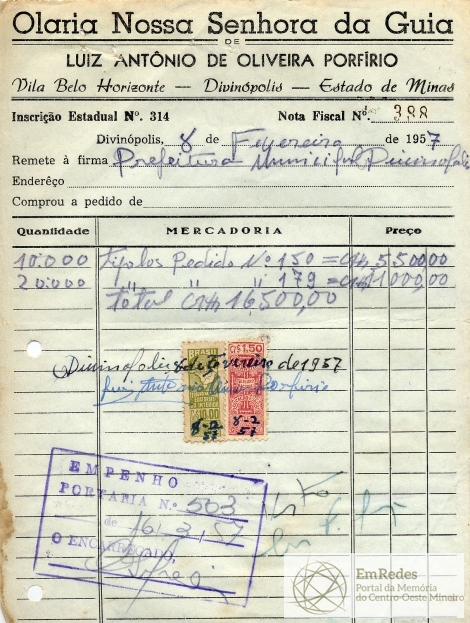 Olaria Nossa Senhora da Guia
DE
LUIZ ANTÔNIO DE OLIVEIRA PORFÍRIO
Vila Belo Horizonte — Divinópolis — Estado de Minas
Inscrição Estadual Nº. 314 Nota Fiscal Nº. 388
Divinópolis, 8 de Fevereiro de 1957
Remete à firma Prefeitura Municipal Divinopolis
Enderêço
Comprou a pedido de
Quantidade MERCADORIA Preço
10.000 tijolos Pedido Nº 150 = Cr$ 5.500,00
20.000 " " " 179 = Cr$ 11.000,00
total Cr$ 16.500,00
Divinopolis 8 de Fevereiro de 1957
Luiz Antonio Porfirio
BRASIL
CR$ 10,00
CR$ 1,50
8-2
57
8-2
57
EMPENHO
PORTARIA N.º 503
de 16/3/57
O ENCARREGADO,
EmRedes
Portal da Memória
do Centro-Oeste Mineiro